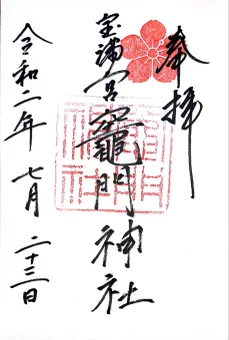 奉拝
宝満宮竈門神社
令和二年 七月 二十三日